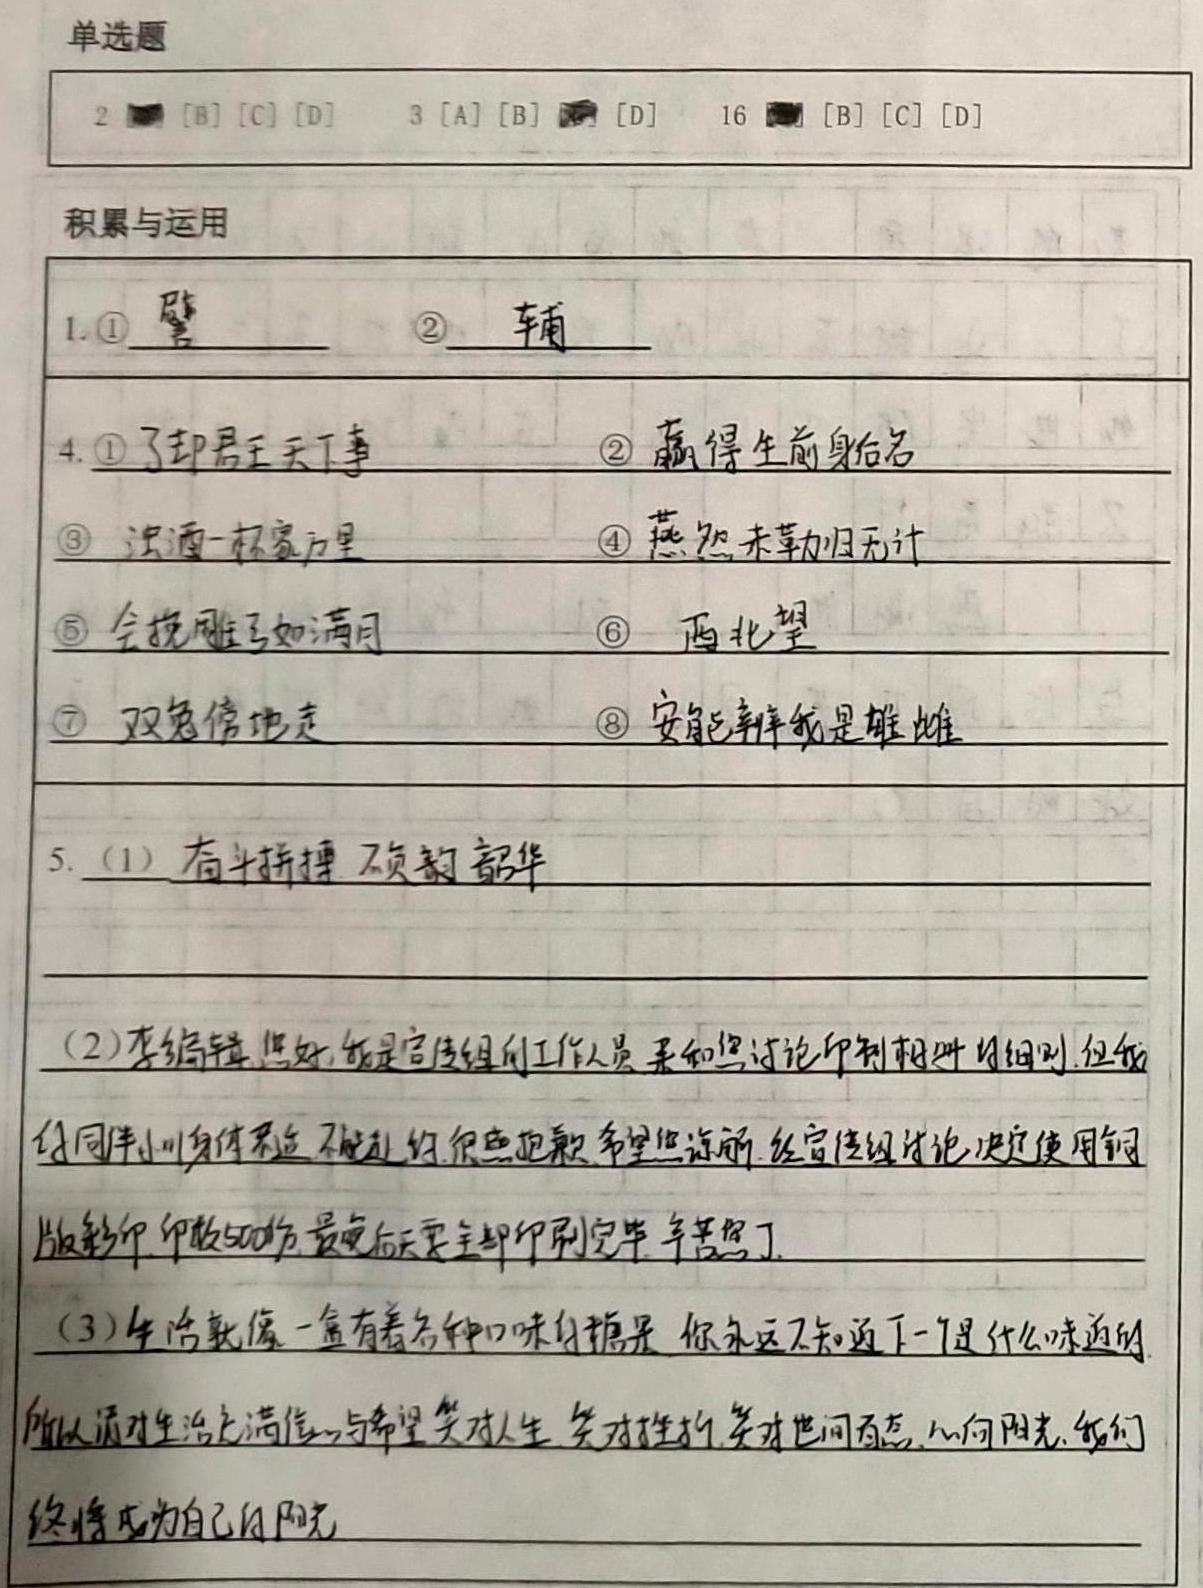 单选题
2 [B] [C] [D] 3 [A] [B] [D] 16 [B] [C] [D]
积累与运用
1. ① 譬 ② 辅
4. ① 了却君王天下事 ② 赢得生前身后名
③ 浊酒一杯家万里 ④ 燕然未勒归无计
⑤ 会挽雕弓如满月 ⑥ 西北望
⑦ 双兔傍地走 ⑧ 安能辨我是雄雌
5. (1) 奋斗拼搏 硕韵韶华
(2) 李编辑,您好,我是宣传组的工作人员 来和您讨论印制相册的细则.但我
的同伴小川身体不适 不能赴约.很是抱歉.希望您谅解.经宣传组讨论,决定使用铜
版彩印.印数500份.最晚后天要全部印刷完毕.辛苦您了.
(3) 生活就像一盒有着各种口味的糖果 你永远不知道下一个是什么味道的.
所以须对生活充满信心与希望 笑对人生 笑对挫折.笑对世间百态.心向阳光.我们
终将成为自己的阳光